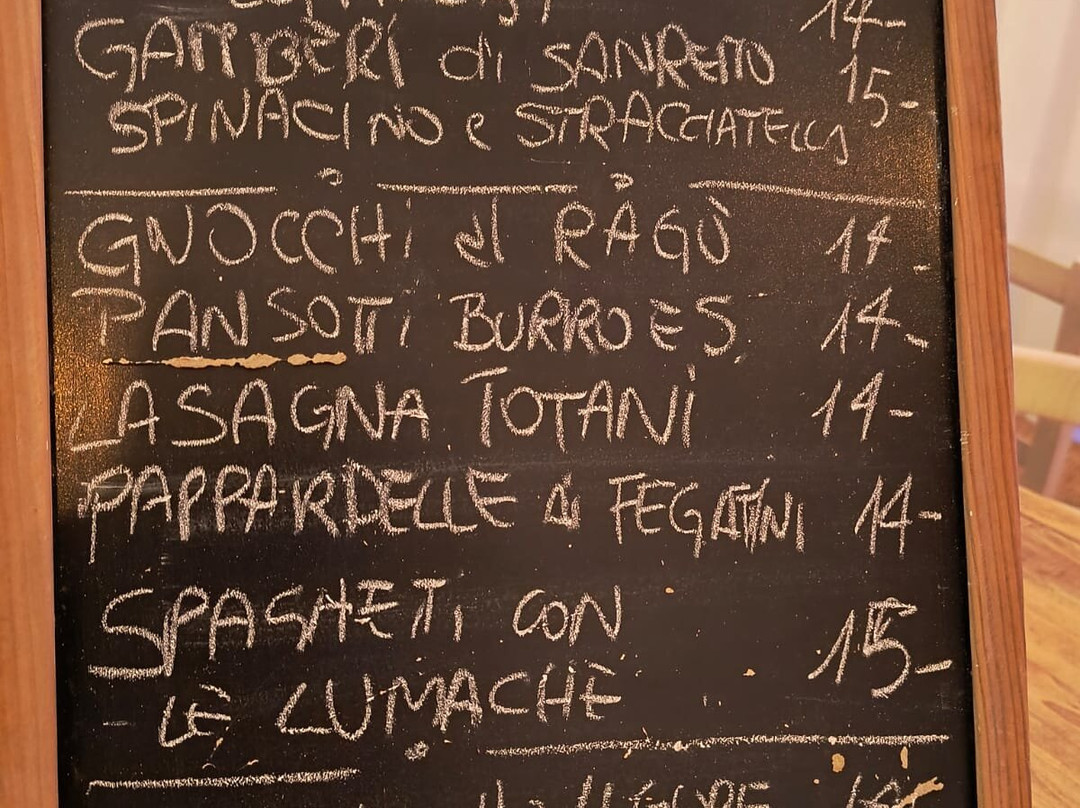 14-
GAMBERI di SANREMO 15-
SPINACINO e STRACCIATELLA
GNOCCHI al RAGÙ 14-
PANSOTTI BURRO E S. 14-
LASAGNA TOTANI 14-
PAPPARDELLE ai FEGATINI 14-
SPAGHETTI CON 15-
LE LUMACHE